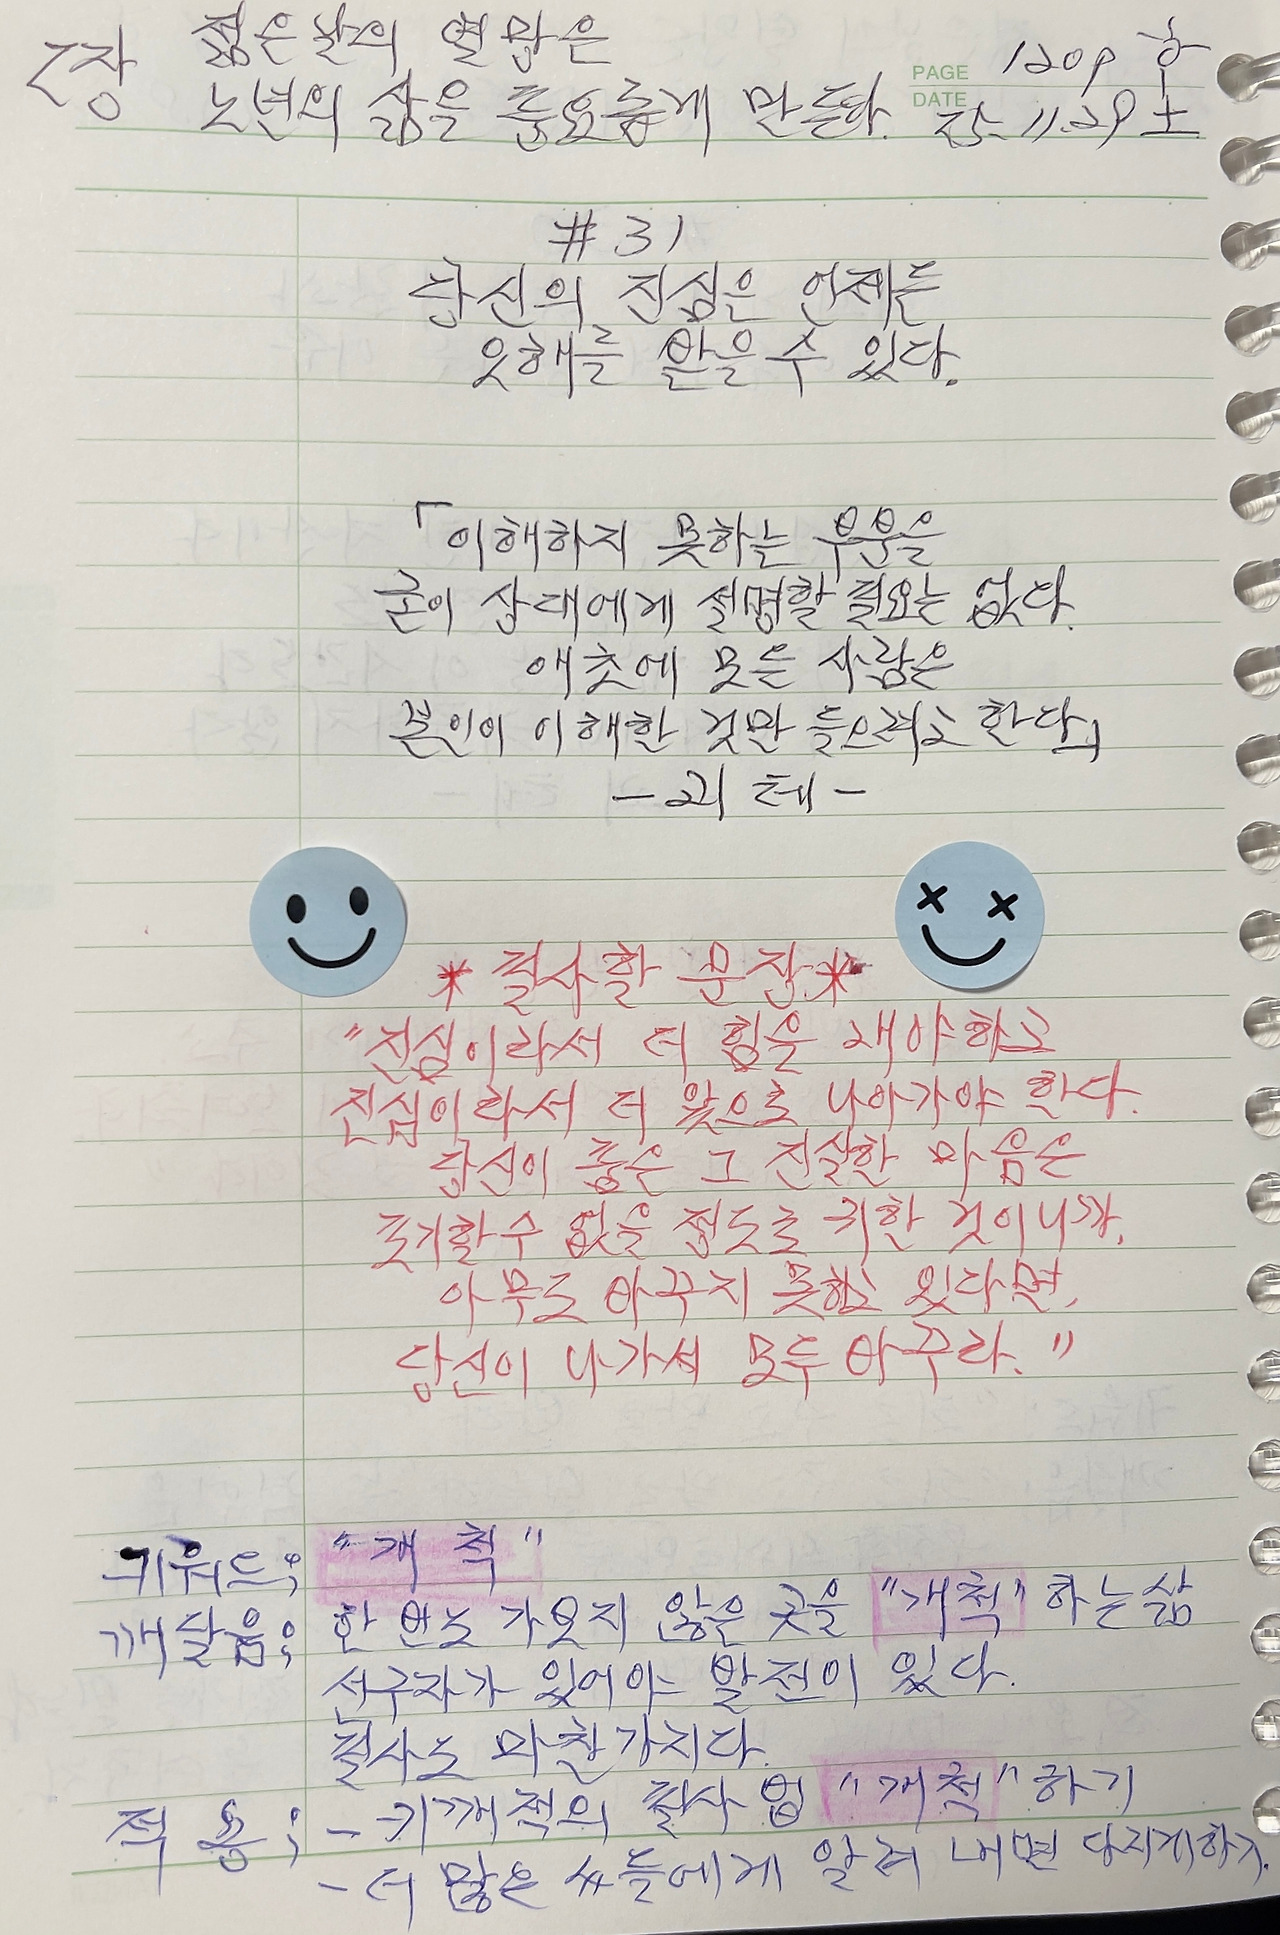 2장 젊은 날의 열망은
노년의 삶을 풍요롭게 만든다.
PAGE 120p
DATE 11.29 土
#31
당신의 진심은 언제든
오해를 받을 수 있다.
「이해하지 못하는 부분을
굳이 상대에게 설명할 필요는 없다.
애초에 모든 사람은
본인이 이해한 것만 들으려고 한다」
-괴테-
*필사할 문장*
"진심이라서 더 힘을 내야하고
진심이라서 더 앞으로 나아가야 한다.
당신이 품은 그 진실한 마음은
포기할 수 없을 정도로 귀한 것이니까.
아무도 바꾸지 못하고 있다면,
당신이 나가서 모두 바꾸라."
키워드; "개척"
깨달음; 한 번도 가보지 않은 곳을 "개척"하는 삶
선구자가 있어야 발전이 있다.
필사도 마찬가지다.
적용; - 키깨적의 필사 업 "개척"하기
- 더 많은 들에게 알려 내면 단지게하기.